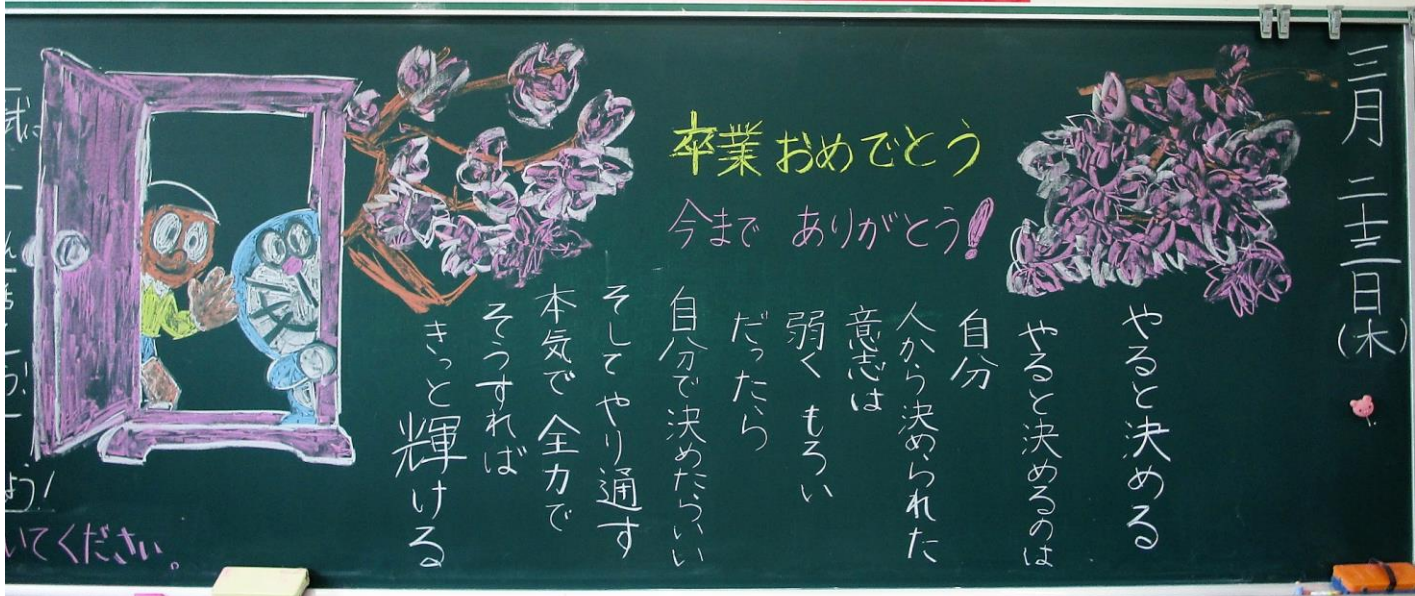 三月二十三日(木)
卒業おめでとう
今まで ありがとう!
やると決める
やると決めるのは
自分
人から決められた
意志は
弱く もろい
だったら
自分で決めたらいい
そして やり通す
本気で 全力で
そうすれば
きっと輝ける
よう!
いてください。